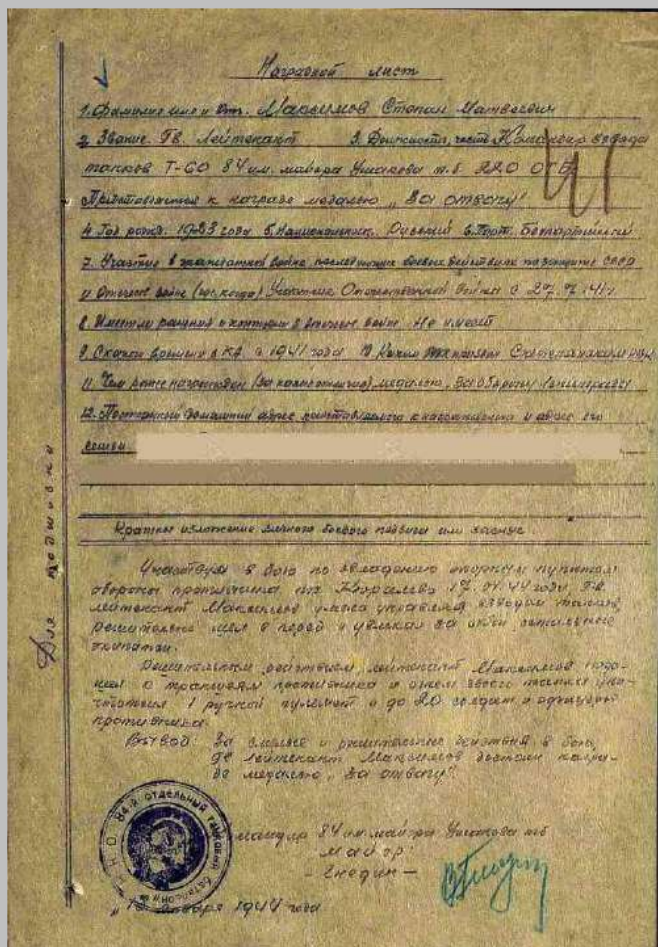 Наградной лист
1. Фамилия имя и Отч. Максимов Степан Матвеевич
2. Звание. Гв. Лейтенант 3. Должность, часть Командир взвода
танков Т-60 84 им. майора Ушакова т.б. 220 ОТБр
Представляется к награде медалью „За отвагу"
4. Год рожд. 1923 года 5. Национальн. Русский 6. Парт. Беспартийный
7. Участие в гражданской войне, последующих боевых действиях по защите СССР
и Отечеств войне (где, когда) Участник Отечественной войны с 27.7.41 г
8. Имеет ли ранения и контузии в отечеств войне Не имеет
9. С какого времени в КА с 1941 года 10. Каким РВК призван
11. Чем ранее награжден (за какие отличия) медалью „За оборону Ленинграда
12. Постоянный домашний адрес представляемого к награждению и адрес его
семьи
Краткое изложение личного боевого подвига или заслуг
Участвуя в бою по овладению опорным пунктом
обороны противника 17.01.44 года, Гв.
лейтенант Максимов умело управляя взводом танков,
решительно шел в перед и увлекал за собой остальные
экипажи.
Решительным действием, лейтенант Максимов подо-
шел к траншеям противника и огнем своего танка уни-
чтожил 1 ручной пулемет и до 20 солдат и офицеров
противника.
Вывод: За смелые и решительные действия в бою,
Гв лейтенант Максимов достоин награ-
де медалью „За отвагу".
84 им. майора Ушакова тб
Майор
84-й отдельный танковый батальон Н.К.О.
января 1944 года
Для подшивки